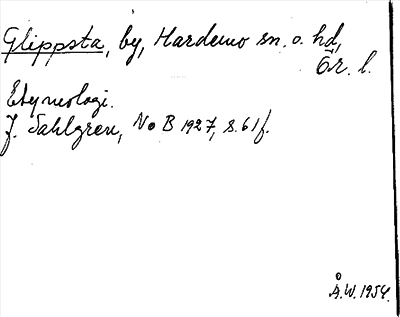 Glippsta, by, Hardemo sn. o. hd,
Ör. l.
Etymologi.
J. Sahlgren, NoB 1927, s. 61 f.
Å.W. 1954.